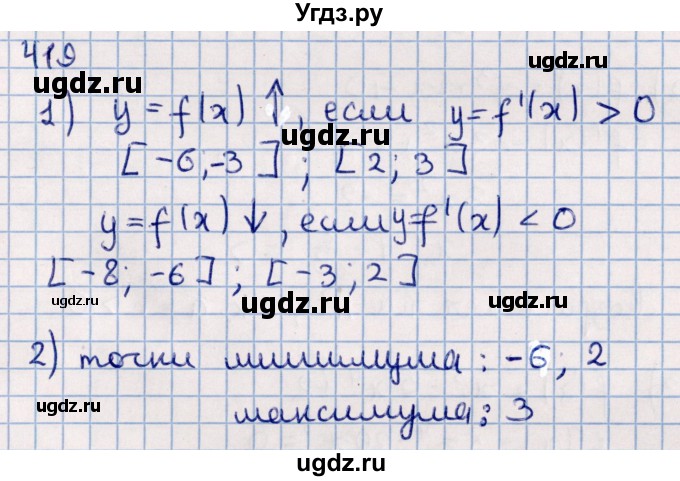 Угдз.ру
419
ugdz.ru
ugdz.ru
1) y = f(x) ↑, если y = f'(x) > 0
ugdz.ru
[-6; -3]; [2; 3]
y = f(x) ↓, если y = f'(x) < 0
[-8; -6]; [-3; 2]
ugdz.ru
ugdz.ru
ugdz.ru
2) точки минимума: -6; 2
ugdz.ru
ugdz.ru
максимума: 3
ugdz.ru